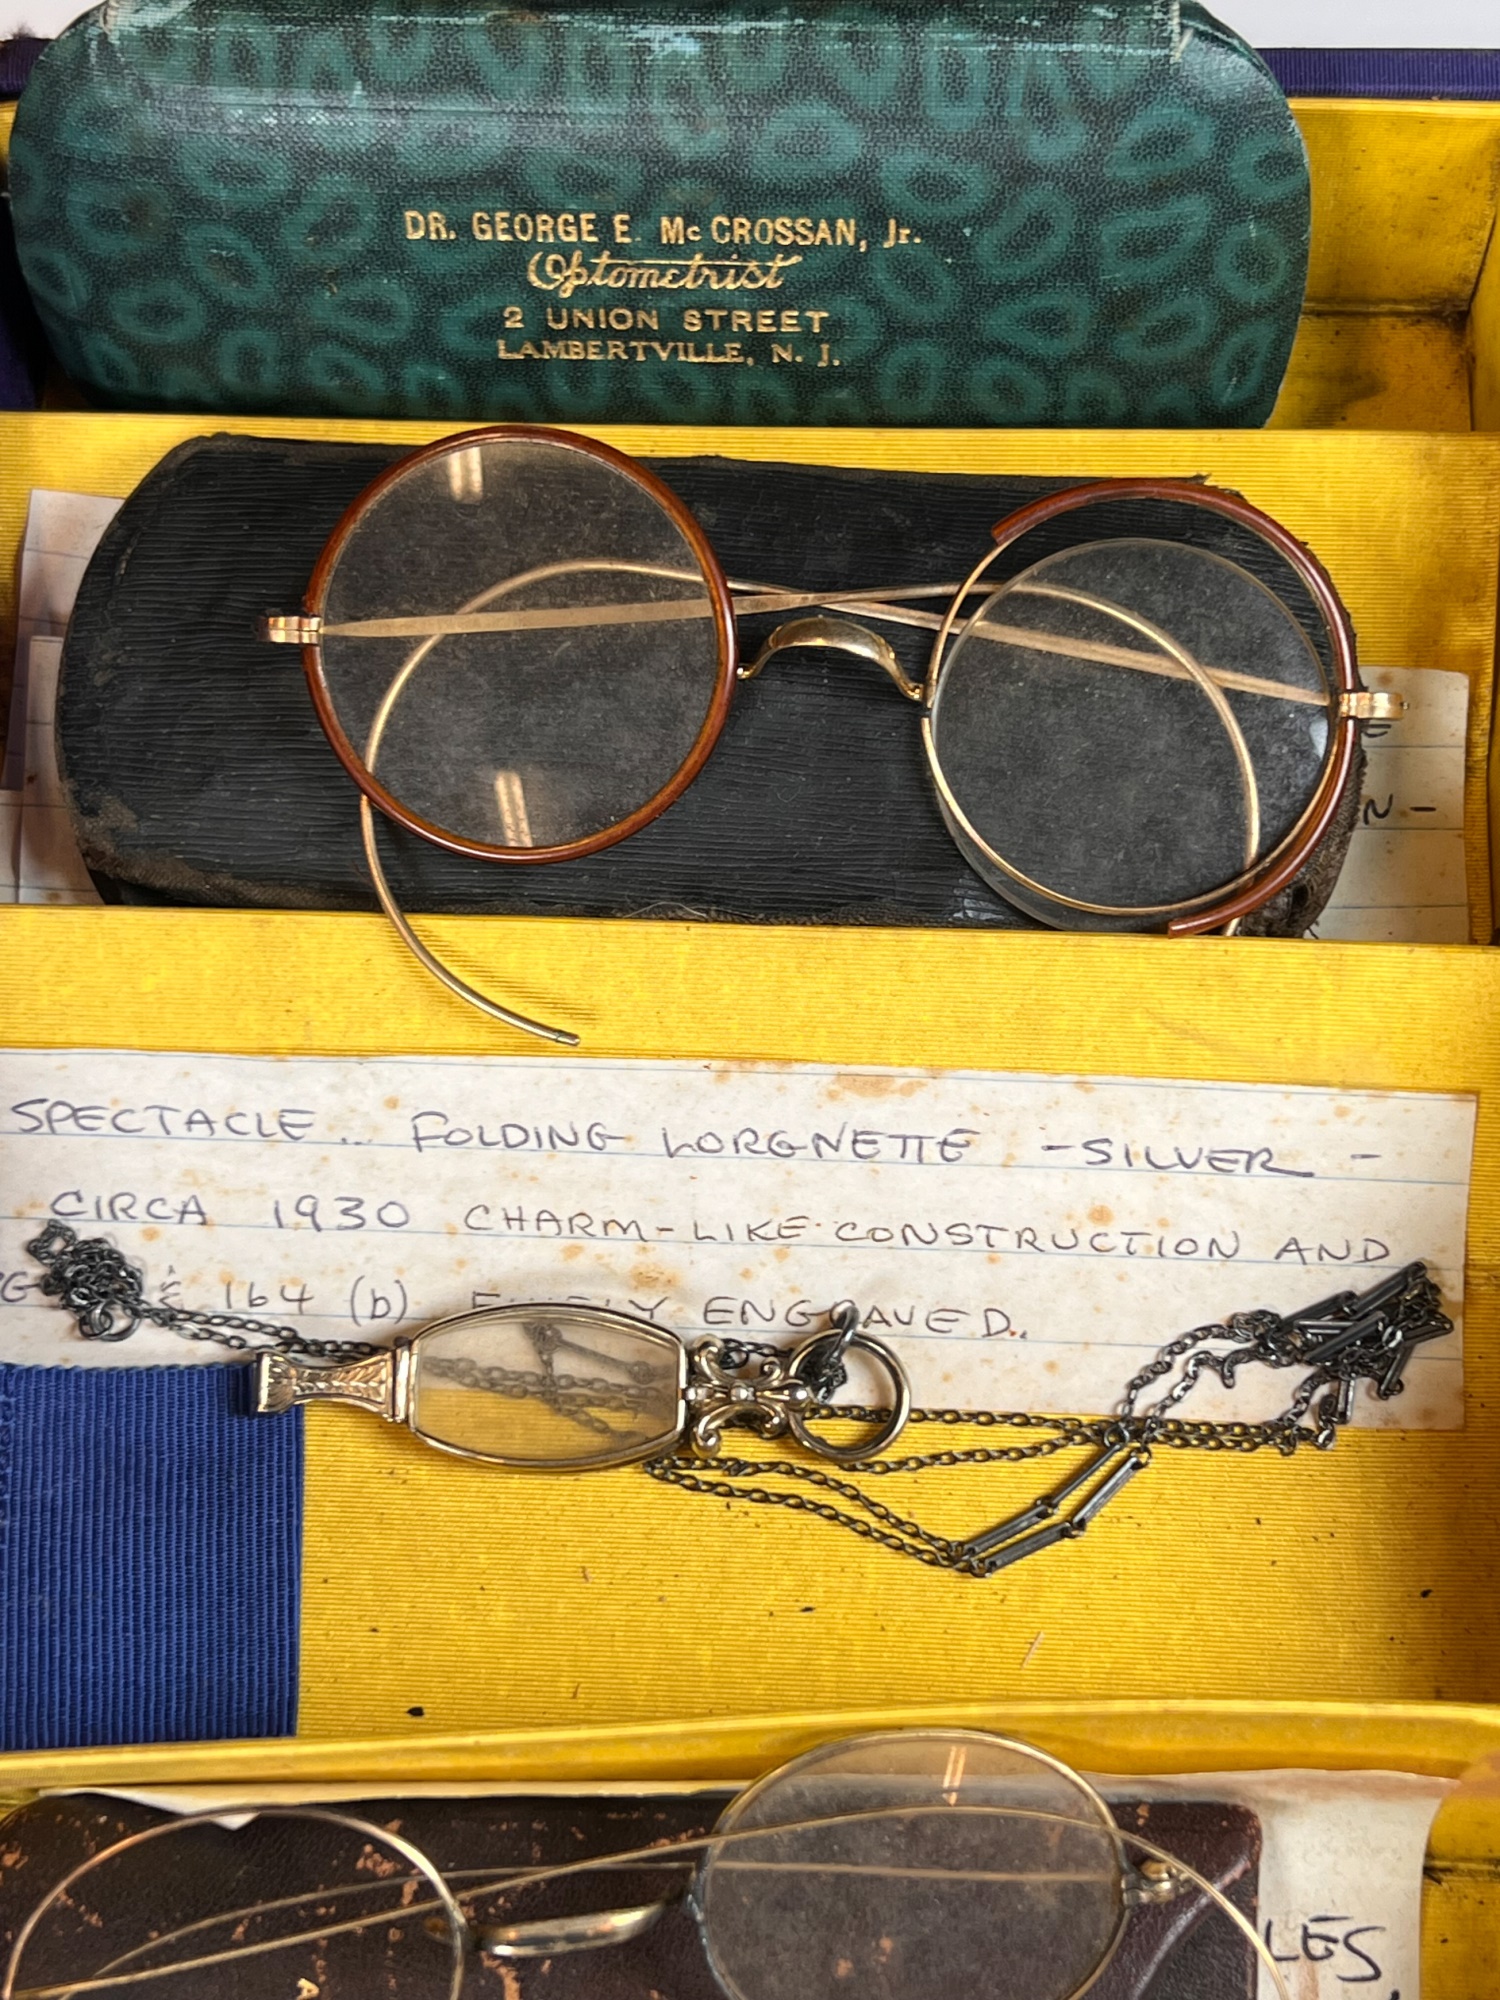 DR. GEORGE E. Mc CROSSAN, Jr.
Optometrist
2 UNION STREET
LAMBERTVILLE, N. J.
N-
SPECTACLE... FOLDING LORGNETTE -SILVER-
CIRCA 1930 CHARM-LIKE CONSTRUCTION AND
164 (b) ENGRAVED.
LES,
A